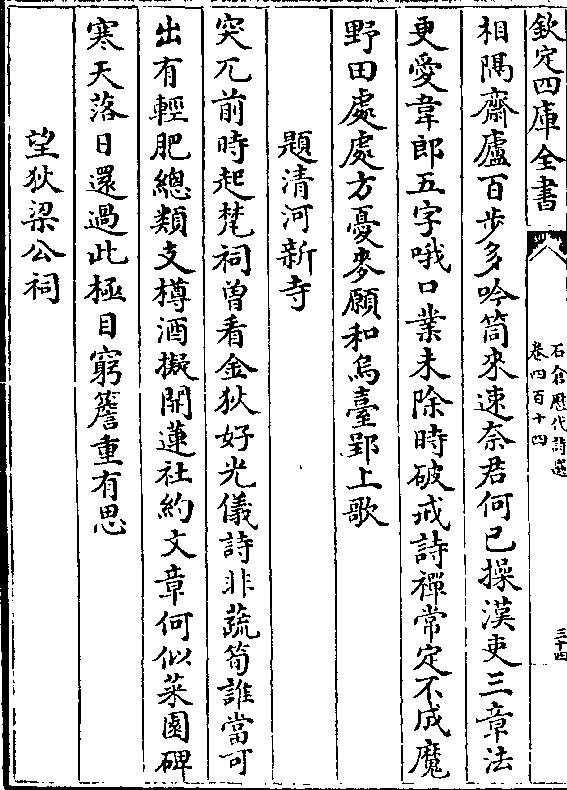 欽定四庫全書
石倉歴代詩選
卷四百十四
三十四
相隅齋廬百步多吟筒來速奈君何已操漢吏三章法
更愛韋郎五字哦口業未除時破戒詩禪常定不成魔
野田處處方憂麥願和烏臺郢上歌
題清河新寺
突兀前時起梵祠曽看金狄好光儀詩非蔬筍誰當可
出有輕肥總類支樽酒擬開蓮社約文章何似菜園碑
寒天落日還過此極目窮簷重有思
望狄梁公祠